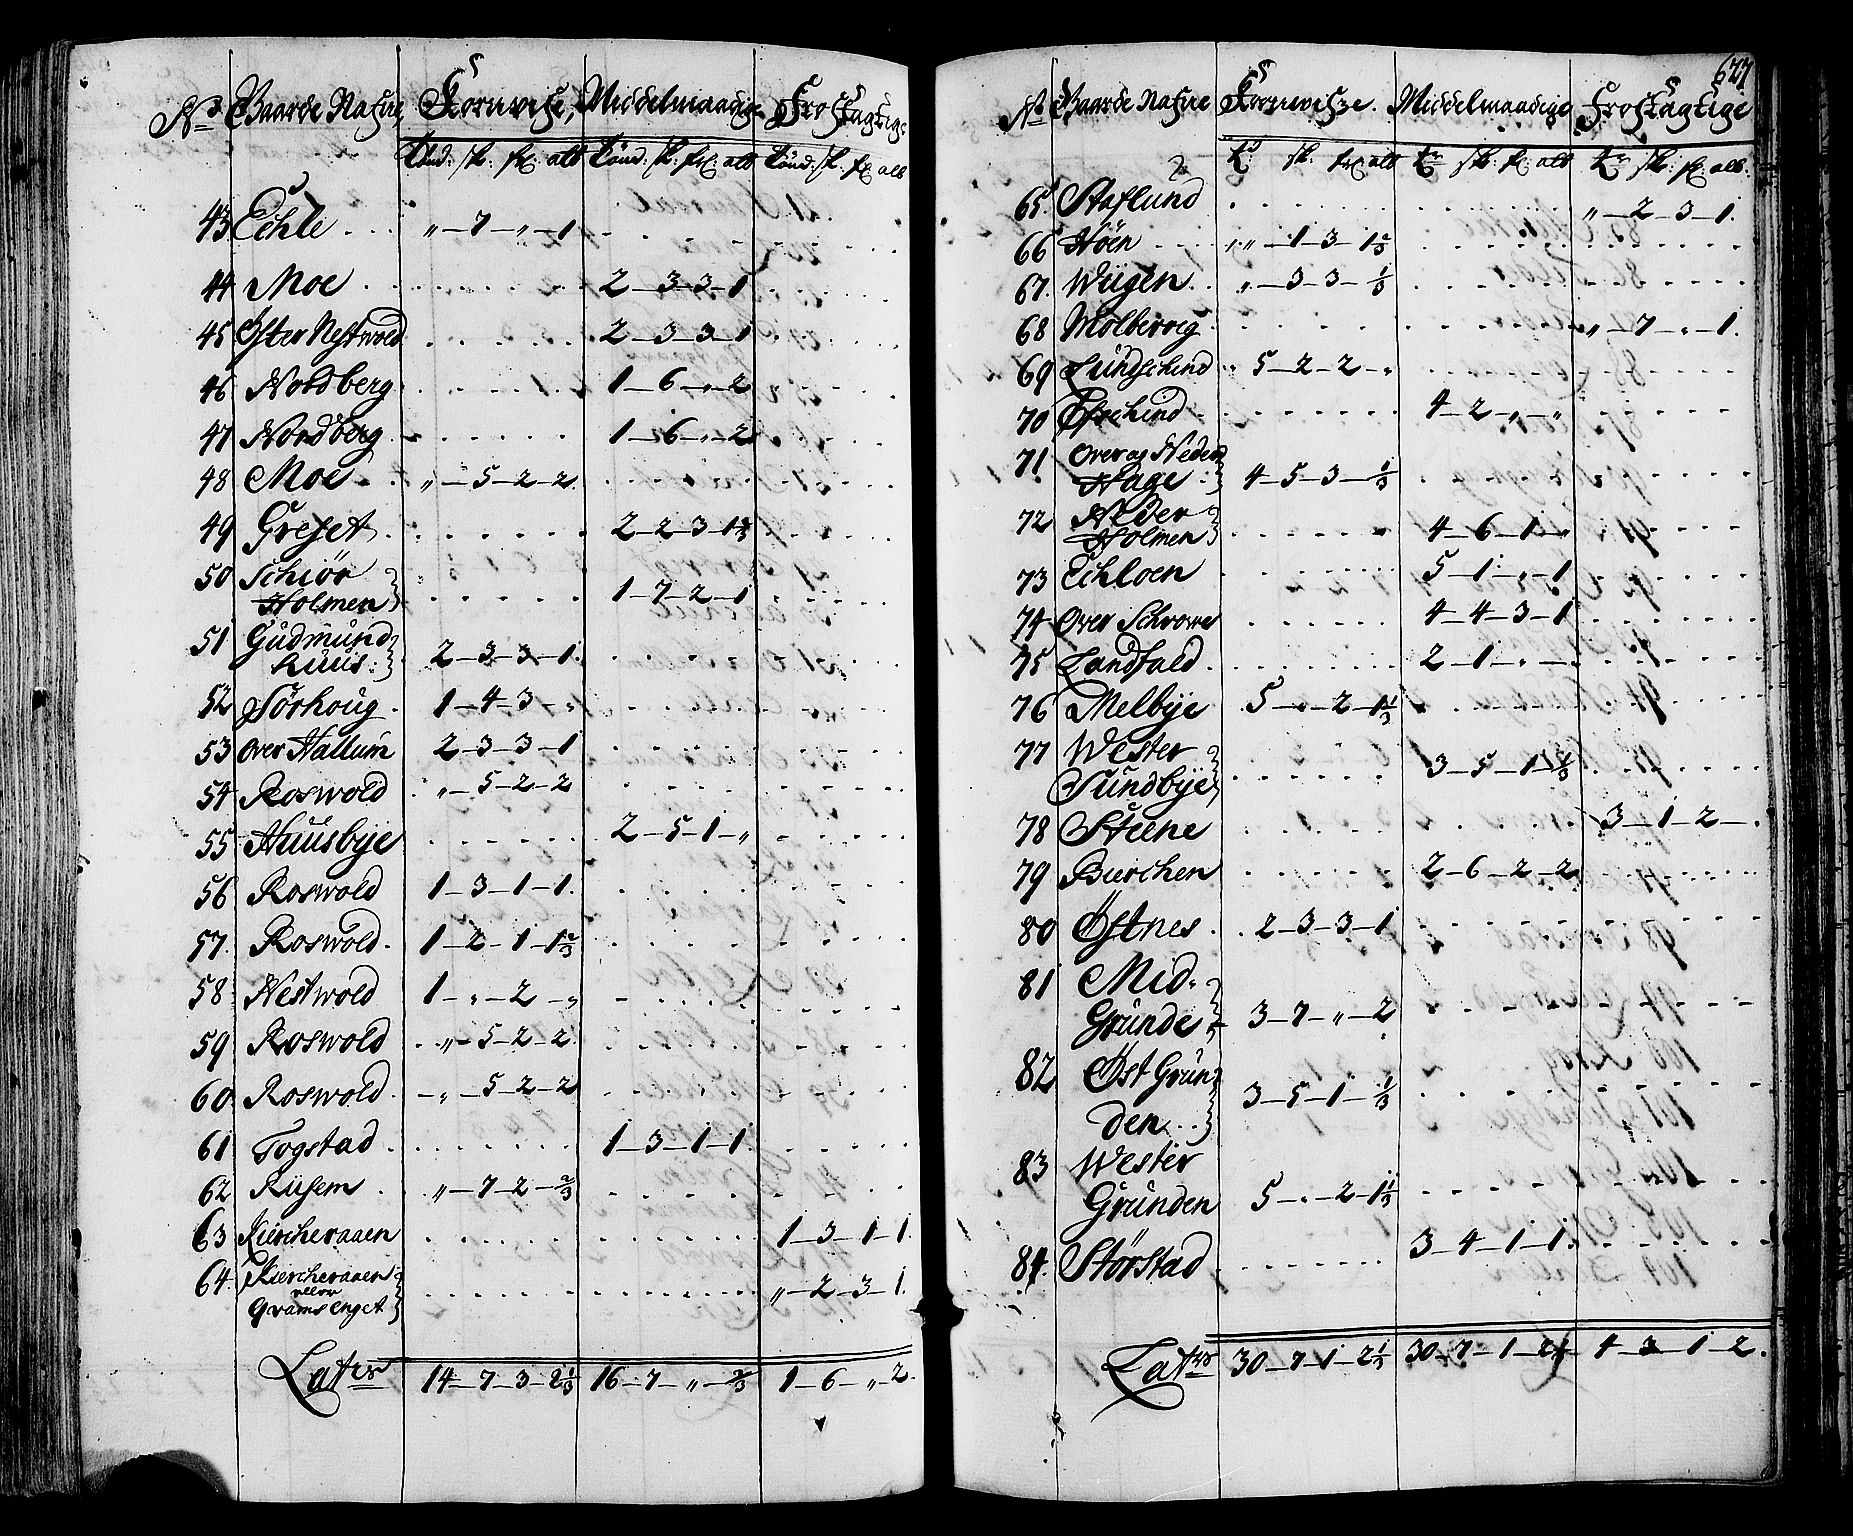 No Gaarde Nafne, Kornvise, Middelmaadig Frostagtig
Tönd: sk: fr: alb Tönd: sk: fr: alb Tönd: sk: fr: alb
43 Echle . . . „ - 7 - „ - 1
44 Moe . 2 - 3 - 3 - 1
45 Öster Nestwold 2 - 3 - 3 - 1
46 Nordberg 1 - 6 - „ - 2
47 Nordberg 1 - 6 - „ - 2
48 Moe „ - 5 - 2 - 2
49 Greset 2 - 2 - 3 - 1 2/3
50 Schiör
Holmen 1 - 7 - 2 - 1
51 Gudmund
huus: 2 - 3 - 3 - 1
52 Sörhoug . 1 - 4 - 3 - „
53 Over Hallum 2 - 3 - 3 - 1
54 Roswold „ - 5 - 2 - 2
55 Huusbye 2 - 5 - 1 - „
56 Roswold 1 - 3 - 1 - 1
57. Roswold. 1 - 2 - 1 - 1 2/3
58 Nestwold 1 - „ - 2 - „
59 Roswold „ - 5 - 2 - 2
60 Roswold „ - 5 - 2 - 2
61 Togstad 1 - 3 - 1 - 1
62 Riisem . „ - 7 - 2 - 2/3
63 Kiercheraaen 1 - 3 - 1 - 1
64 Kiercheraaen
eller
Grams enget „ - 2 - 3 - 1
Later 14 - 7 - 3 - 2 1/3 16 - 7 - „ - 2/3 1 - 6 - „ - 2
627
No Gaarde Nafne Kornvisze. Middelmaadige Frostagtige
Tr sk: fr: alb Tr sk: fr: alb Tr sk: fr: alb.
65 Haflund „ - 2 - 3 - 1
66 Höen „ „ - 1 - 3 - 1 2/3
67. Wiigen „ - 3 - 3 - 1/3
68 Molberog „ - 7 - „ - 1.
69 Lundschind 5 - 2 - 2 - „
70 Eschind 4 - 2 - „ - „
71 Over og Neder
Hage : 4 - 5 - 3 - 1/3
72 Neder
Holmen 4 - 6 - 1 - „
73 Echloen 5 - 1 - „ - 1
74 Over Schrowe 4 - 4 - 3 - 1
75 Landfald . 2 - 1 - „ -
76 Melbye 5 - „ - 2 - 1 1/3
77 Wester
Sundbye 3 - 5 - 1 - 1/3
78 Steene 3 - 1 - 2 - .
79 Bierchen 2 - 6 - 2 - 2
80 Östnes . 2 - 3 - 3 - 1
81 Mid-
Grunde 3 - 7 - „ - 2
82 Öst Grun
den 3 - 5 - 1 - 1/3
83 Wester
Grunden 5 - „ - 2 - 1 1/3
84. Störstad 3 - 4 - 1 - 1
Later 30 - 7 - 1 - 2 1/3 30 - 7 - 1 - 2 1/3 4 - 3 - 1 - 2.